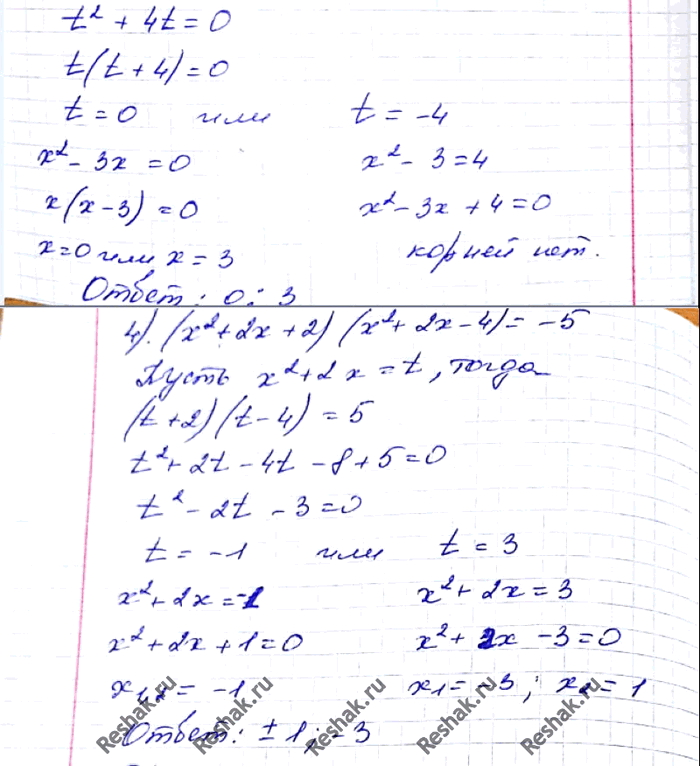 t² + 4t = 0
t(t + 4) = 0
t = 0 или t = -4
x² - 3x = 0 x² - 3 = 4
x(x - 3) = 0 x² - 3x + 4 = 0
x = 0 или x = 3 корней нет.
Ответ: 0; 3
4). (x² + 2x + 2)(x² + 2x - 4) = -5
Пусть x² + 2x = t, тогда
(t + 2)(t - 4) = 5
t² + 2t - 4t - 8 + 5 = 0
t² - 2t - 3 = 0
t = -1 или t = 3
x² + 2x = -1 x² + 2x = 3
x² + 2x + 1 = 0 x² + 2x - 3 = 0
x₁,₂ = -1 x₁ = -3; x₂ = 1
Ответ: ± 1; -3
Reshak.ru Reshak.ru Reshak.ru Reshak.ru Reshak.ru